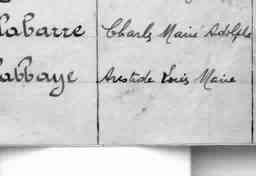 Labarre Charles Marie Adolphe
Labbaye Aristide Louis Marie